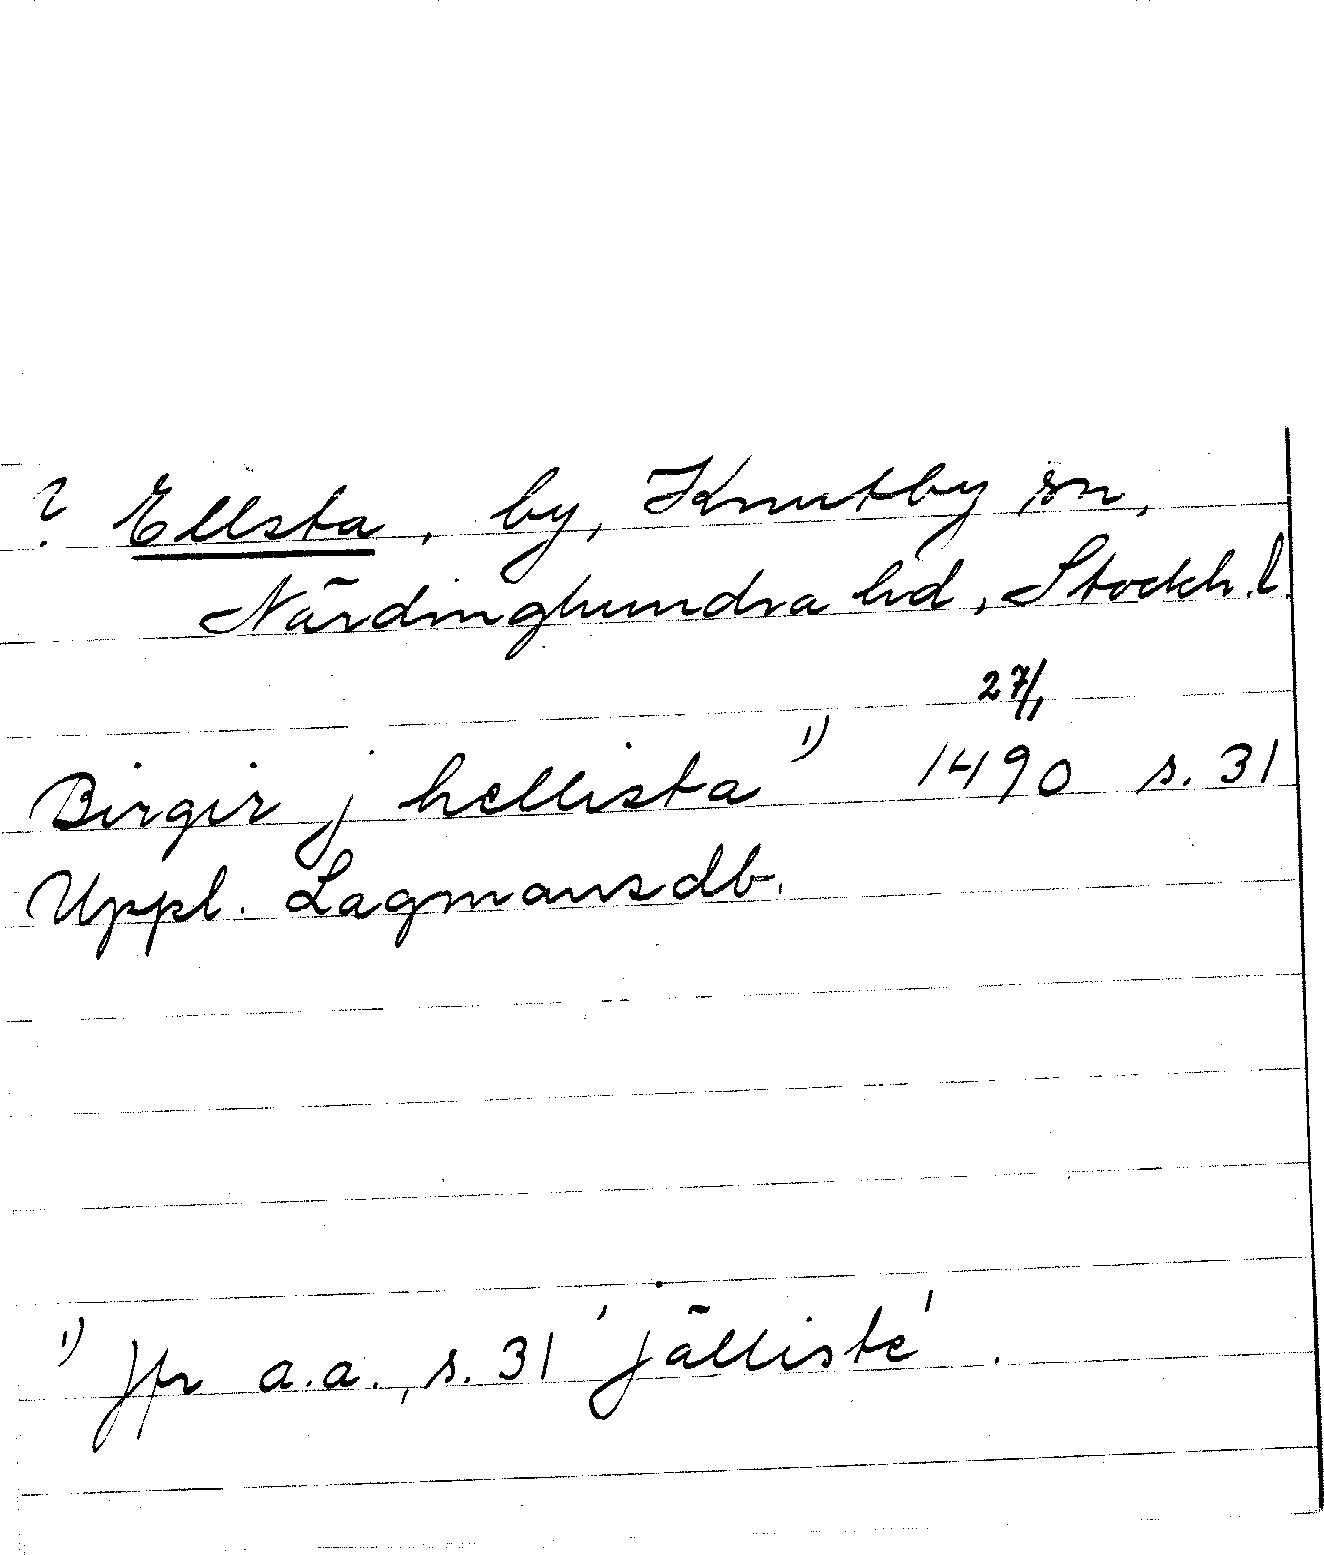 ? Ellsta, by, Knutby sn,
Närdinghundra hd, Stockh. l.
27/1
Birgir j hellista 1) 1490 s. 31
Uppl. Lagmansdb.
1) Jfr a.a., s. 31 'jälliste'.